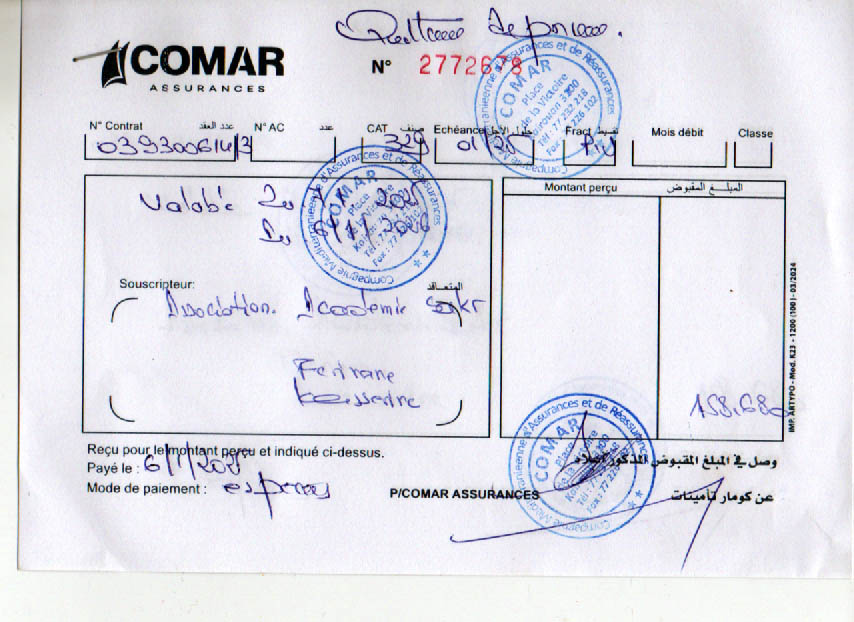 Quittance de prime.
COMAR
ASSURANCES
N° 2772678
N° Contrat عدد العقد N° AC عدد CAT صنف Echéance حلول الأجل Fract تقسيط Mois débit Classe
0393006143 329 01/25
Montant perçu المبلغ المقبوض
Valable Du 2025
Du 6/1/2026
Souscripteur: المتعاقد
Association. Academie
158,680
Reçu pour le montant perçu et indiqué ci-dessus. وصل في المبلغ المقبوض المذكور أعلاه
Payé le : 6/1/2025
Mode de paiement : especes
P/COMAR ASSURANCES عن كومار تأمينات
IMP. ARTYPO - Mod. K23 - 1200 (100) - 03/2024
Compagnie Méditerranéenne d'Assurances et de Réassurances
COMAR
Place
de la Victoire
Kairouan 3100
Tél : 77 232 218